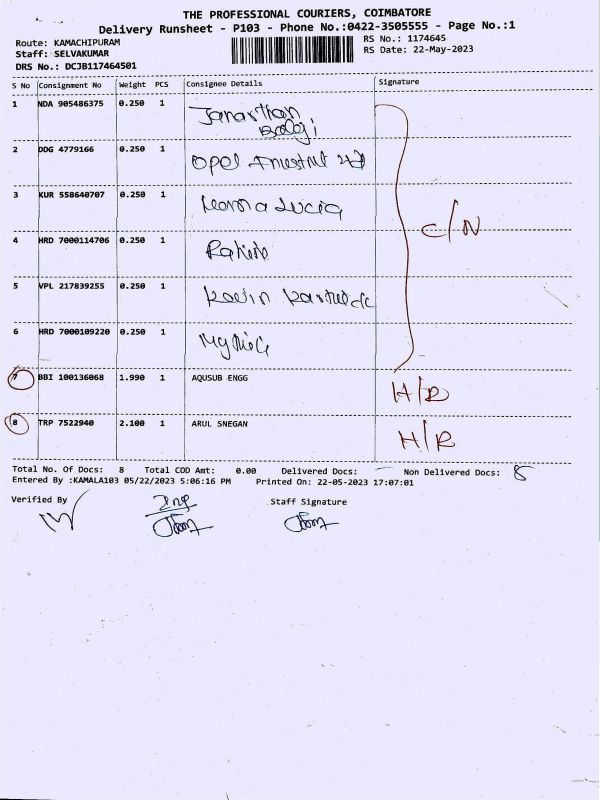 THE PROFESSIONAL COURIERS, COIMBATORE
Delivery Runsheet - P103 - Phone No.:0422-3505555 - Page No.:1
Route: KAMACHIPURAM
RS No.: 1174645
Staff: SELVAKUMAR
RS Date: 22-May-2023
DRS No.: DCJB117464501
S No Consignment No Weight PCS Consignee Details Signature
1 NDA 905486375 0.250 1 Janarthan
Balaji
2 DDG 4779166 0.250 1 Opel
3 KUR 558640707 0.250 1 Lucia
C/N
4 HRD 7000114706 0.250 1 Rakesh
5 VPL 217839255 0.250 1 Kavin
6 HRD 7000109220 0.250 1
7 BBI 100136068 1.990 1 AQUSUB ENGG H/R
8 TRP 7522940 2.100 1 ARUL SNEGAN H/R
Total No. Of Docs: 8 Total COD Amt: 0.00 Delivered Docs: — Non Delivered Docs: 8
Entered By :KAMALA103 05/22/2023 5:06:16 PM Printed On: 22-05-2023 17:07:01
Verified By Staff Signature